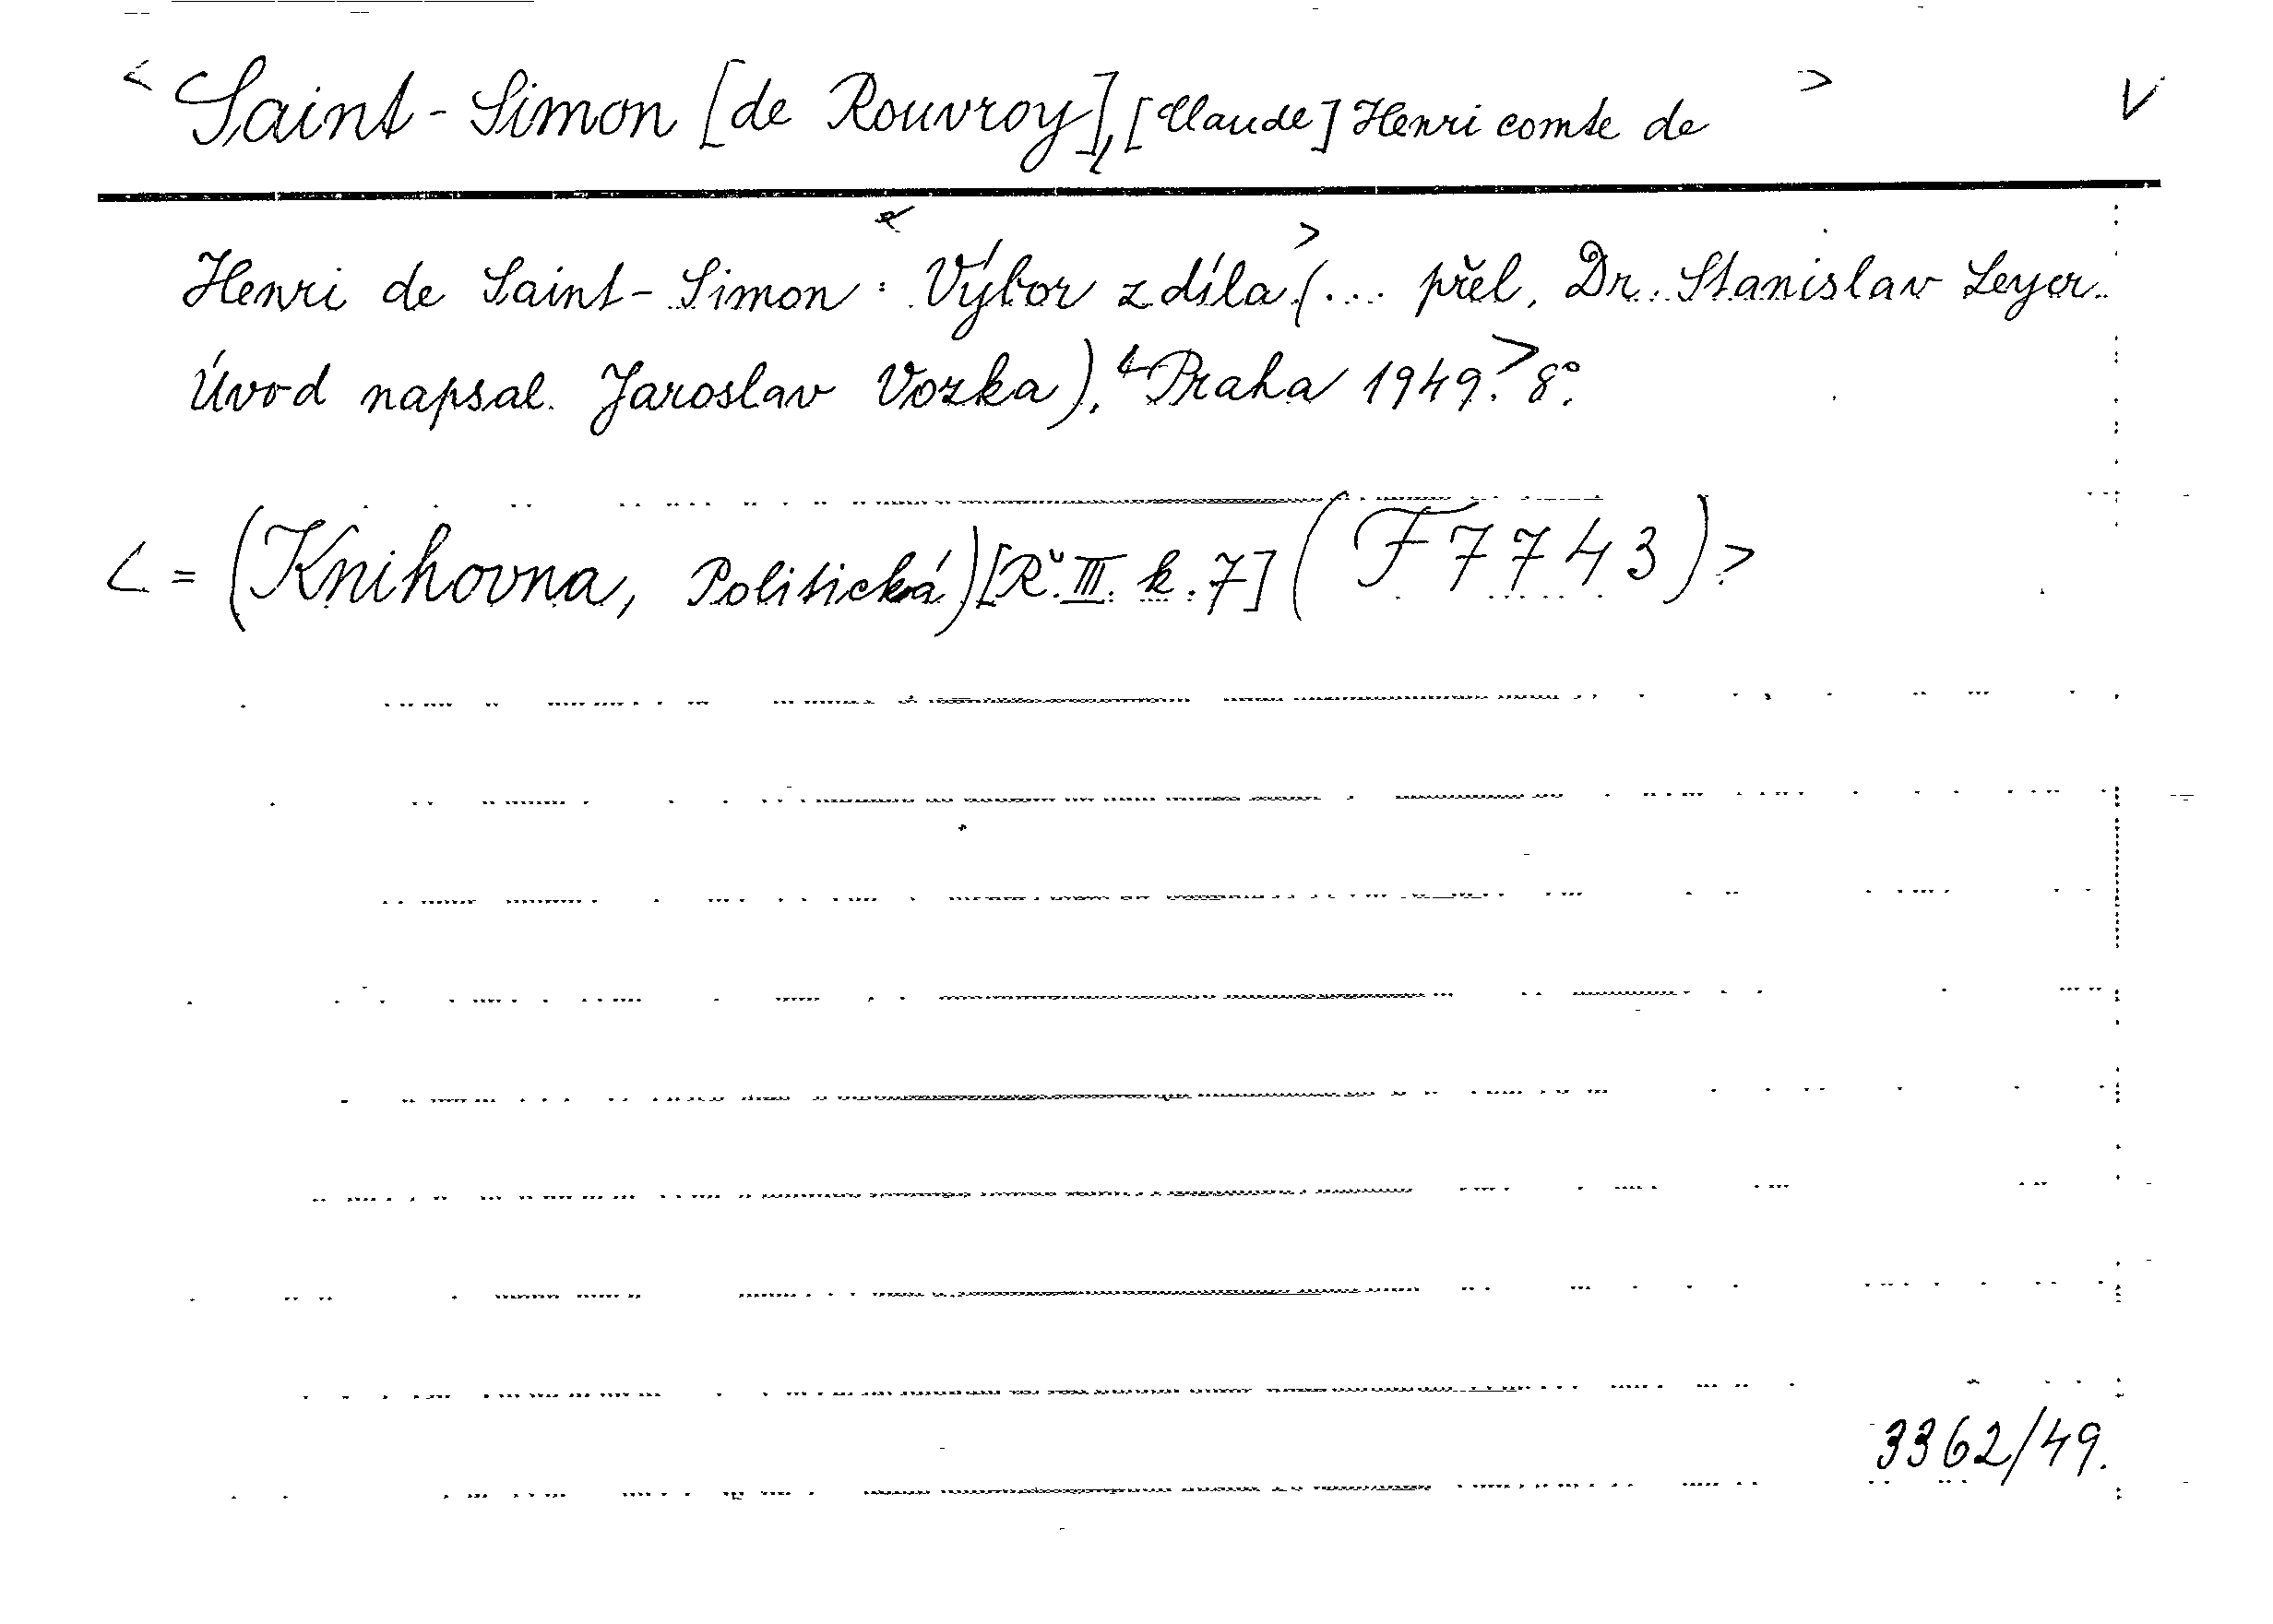 < Saint-Simon [de Rouvroy], [Claude] Henri comte de > V
Henri de Saint-Simon: <Výbor z díla> (... přel. Dr. Stanislav Leyer.
Úvod napsal Jaroslav Vozka). <Praha 1949.> 8°.
< = (Knihovna, Politická) [Ř. III. k. 7] (F 7743) >
3362/49.